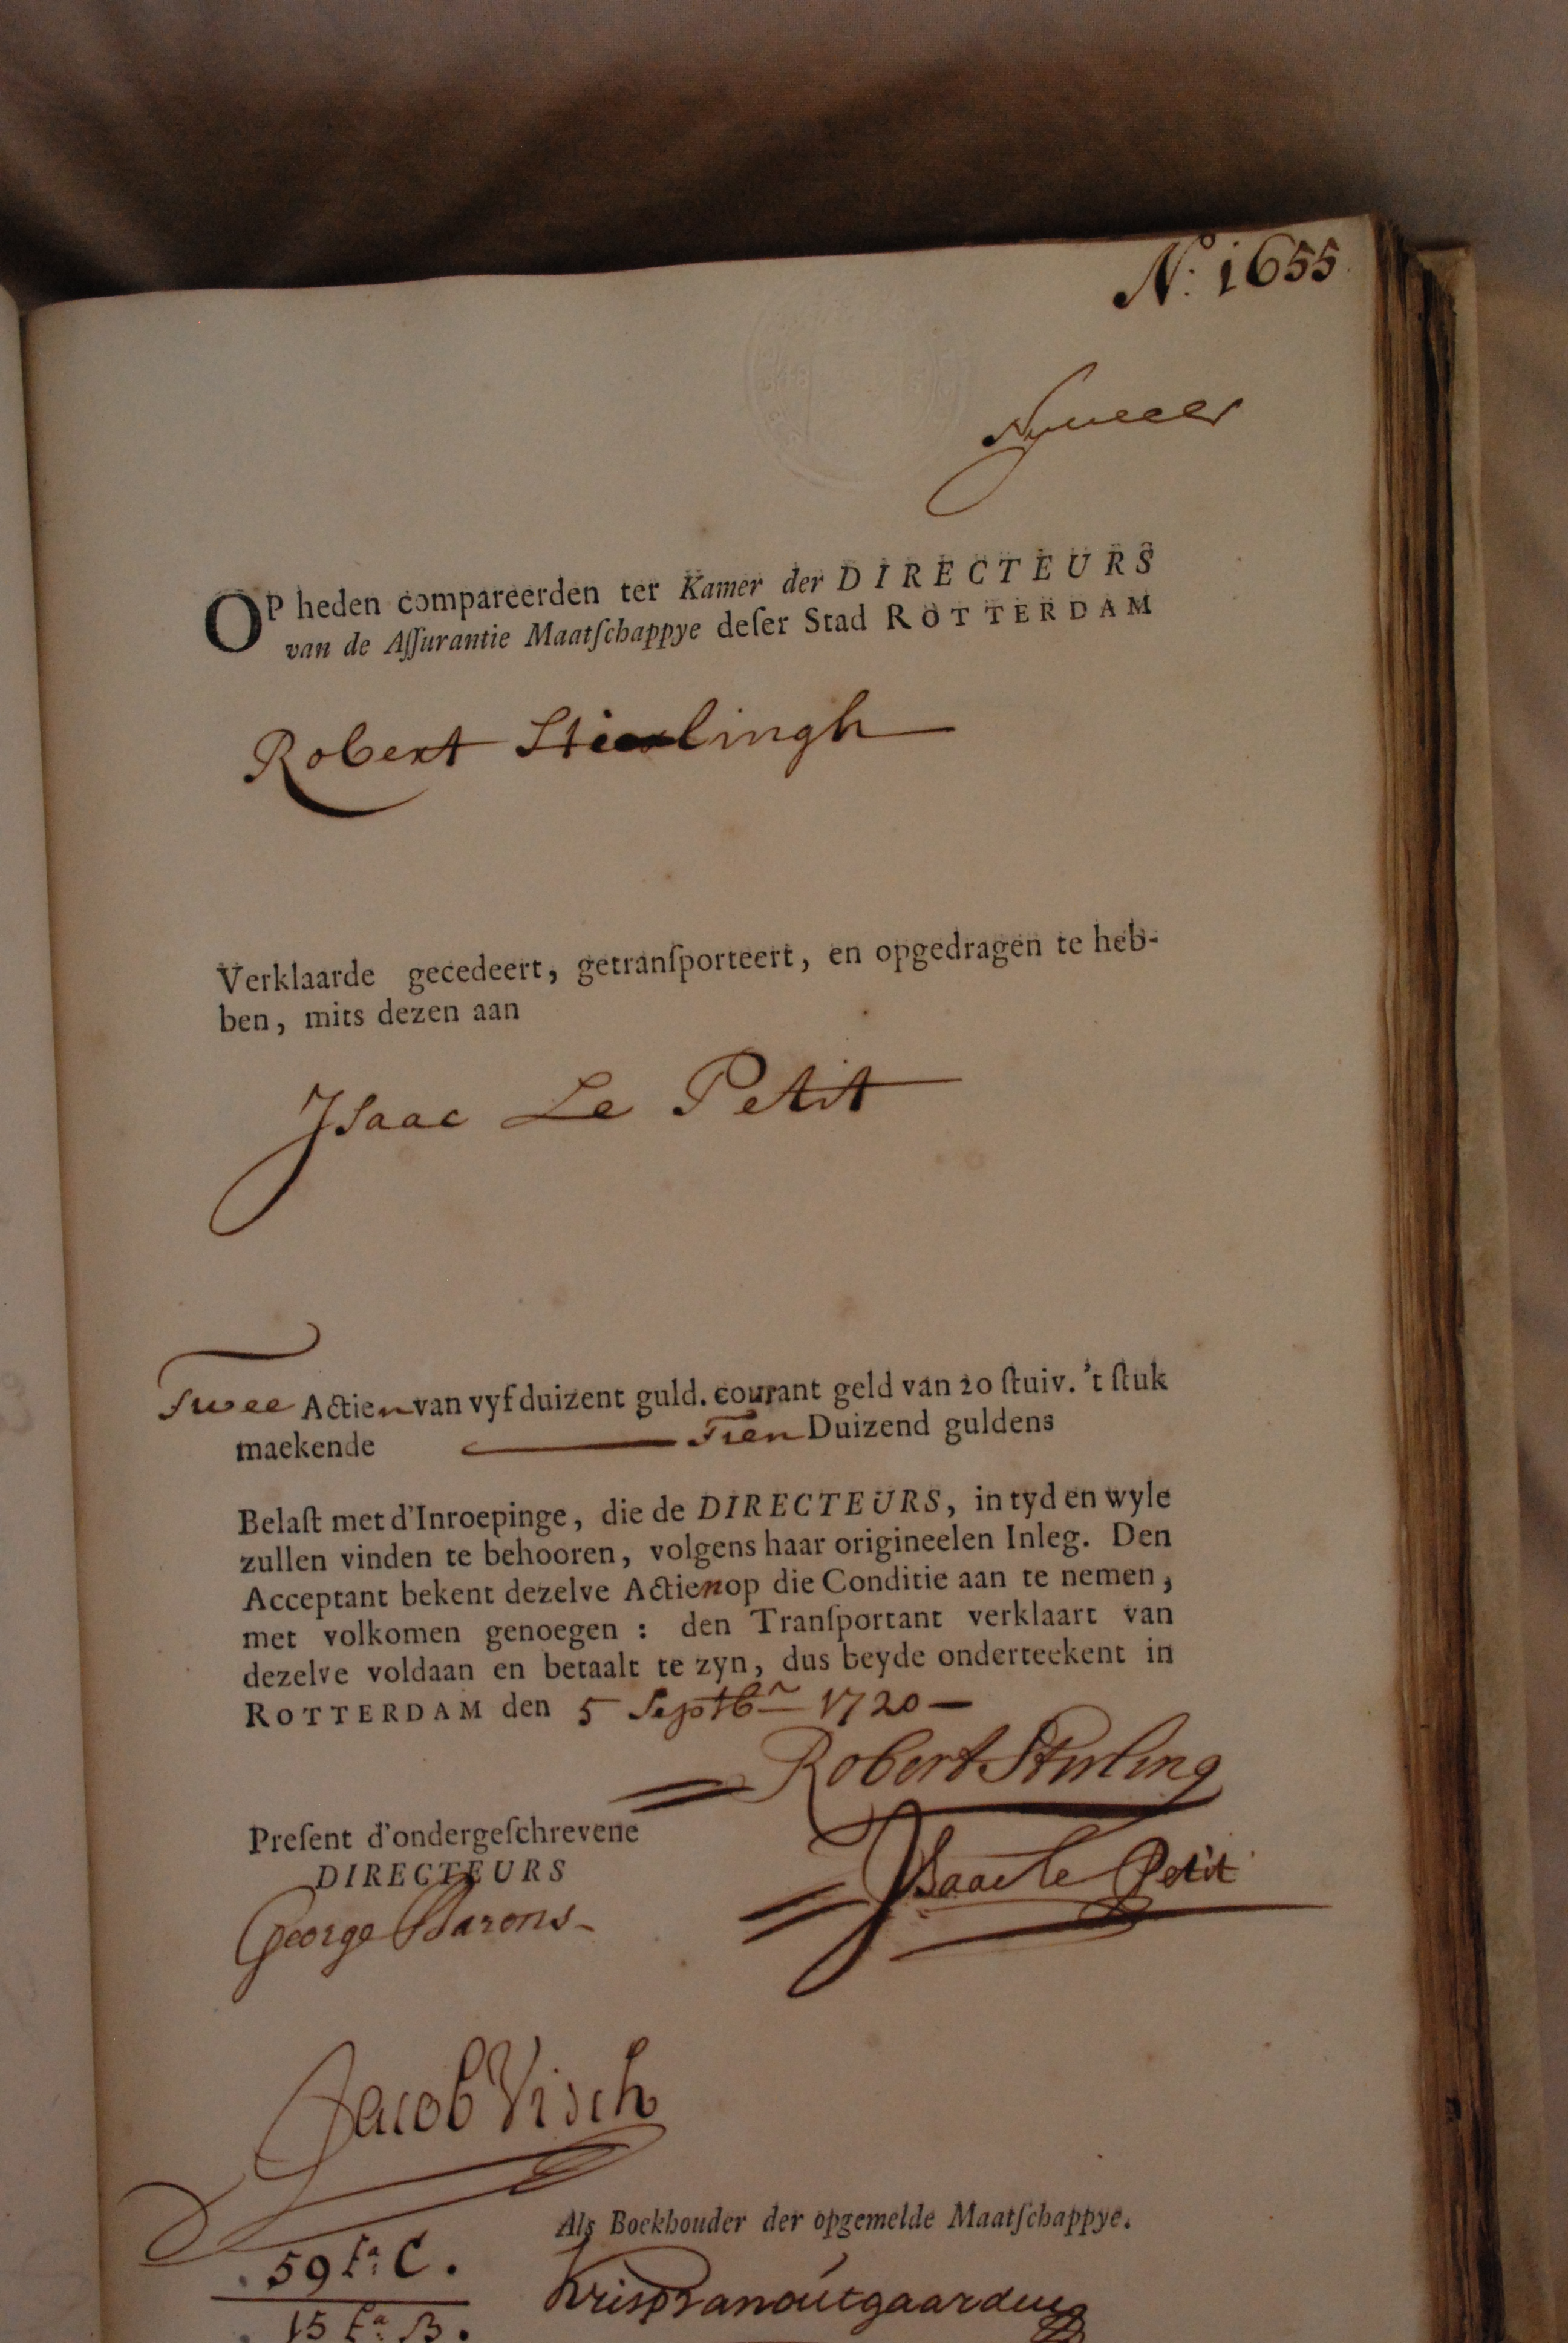 No: 1655
OP heden compareerden ter Kamer der DIRECTEURS
van de Aſſurantie Maatſchappye deſer Stad ROTTERDAM
Robert Stierlingh
Verklaarde gecedeert, getranſporteert, en opgedragen te heb-
ben, mits dezen aan
Isaac Le Petit
Twee Actien van vyf duizent guld. courant geld van 20 ſtuiv. 't ſtuk
maekende Tien Duizend guldens
Belaſt met d'Inroepinge, die de DIRECTEURS, in tyd en wyle
zullen vinden te behooren, volgens haar origineelen Inleg. Den
Acceptant bekent dezelve Actien op die Conditie aan te nemen,
met volkomen genoegen : den Tranſportant verklaart van
dezelve voldaan en betaalt te zyn, dus beyde onderteekent in
ROTTERDAM den 5 Septbr 1720
Robert Stirling
Preſent d'ondergeſchrevene
DIRECTEURS
Isaac le Petit
George Barons
Jacob Visch
Als Boekhouder der opgemelde Maatſchappye.
59 fa: C.
15 fa: B.